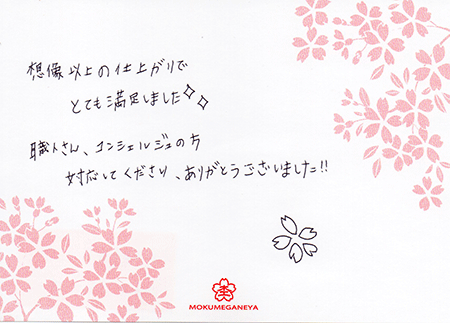 想像以上の仕上がりで
とても満足しました
職人さん、コンシェルジュの方
対応してくださり、ありがとうございました!!
MOKUMEGANEYA